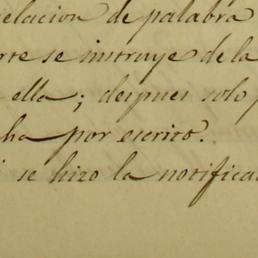 elacion de palabra
rte se instruye de la
ella; despues solo
ha por escrito.
se hizo la notifica